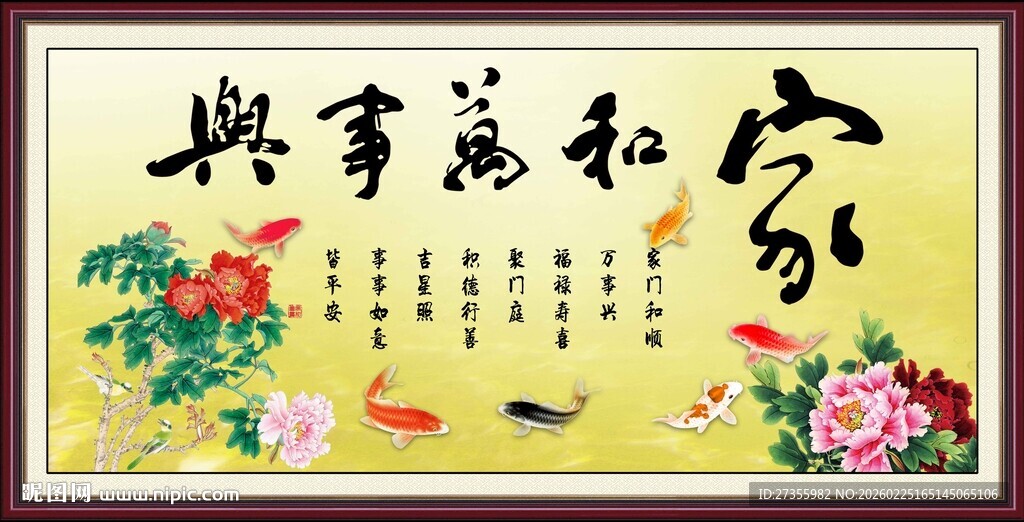 家和萬事興
家门和顺
万事兴
福禄寿喜
聚门庭
积德行善
吉星照
事事如意
皆平安
昵图网 www.nipic.com
ID:27355982 NO:20260225165145065106